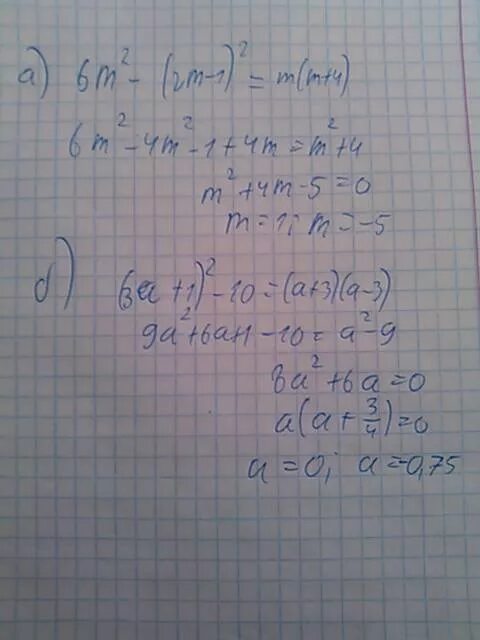 а) 6m² - (2m-1)² = m(m+4)
6m² - 4m² - 1 + 4m = m² + 4
m² + 4m - 5 = 0
m = 1; m = -5
б) (3a + 1)² - 10 = (a+3)(a-3)
9a² + 6a + 1 - 10 = a² - 9
8a² + 6a = 0
a(a + 3/4) = 0
a = 0; a = -0,75